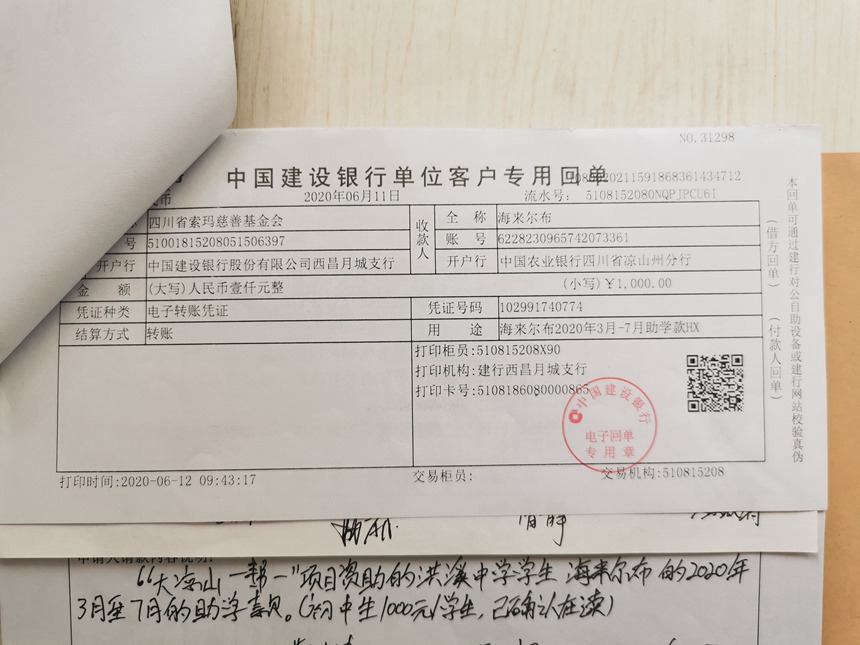 NO.31298
中国建设银行单位客户专用回单
2020年06月11日 流水号: 5108152080NQPJPCU6I
四川省索玛慈善基金会 收款人 全 称 海来尔布
号 51001815208051506397 账 号 6228230965742073361
开户行 中国建设银行股份有限公司西昌月城支行 开户行 中国农业银行四川省凉山州分行
金 额 (大写)人民币壹仟元整 (小写)¥1,000.00
凭证种类 电子转账凭证 凭证号码 102991740774
结算方式 转账 用 途 海来尔布2020年3月-7月助学款HX
打印柜员:510815208X90
打印机构:建行西昌月城支行
打印卡号:5108186080000865
中国建设银行
电子回单
专用章
打印时间:2020-06-12 09:43:17 交易柜员: 交易机构:510815208
本回单可通过建行对公自助设备或建行网站校验真伪
(借方回单)
(付款人回单)
申请人请款内容说明:
“大凉山一帮一”项目资助的洪溪中学学生 海来尔布 的2020年
3月至7月的助学款。(初中生1000元/学生,已确认在读)